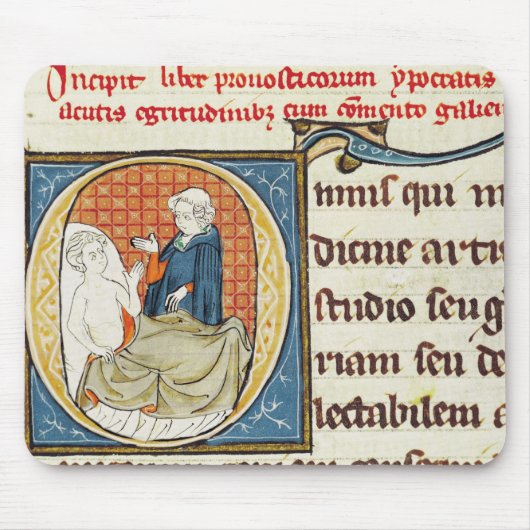 Incipit liber pronosticorum ypocratis
acutis egritudinibꝫ cum cōmento galien
Omnis qui m
dicine artis
studio seu gl
riam seu de
lectabilem a